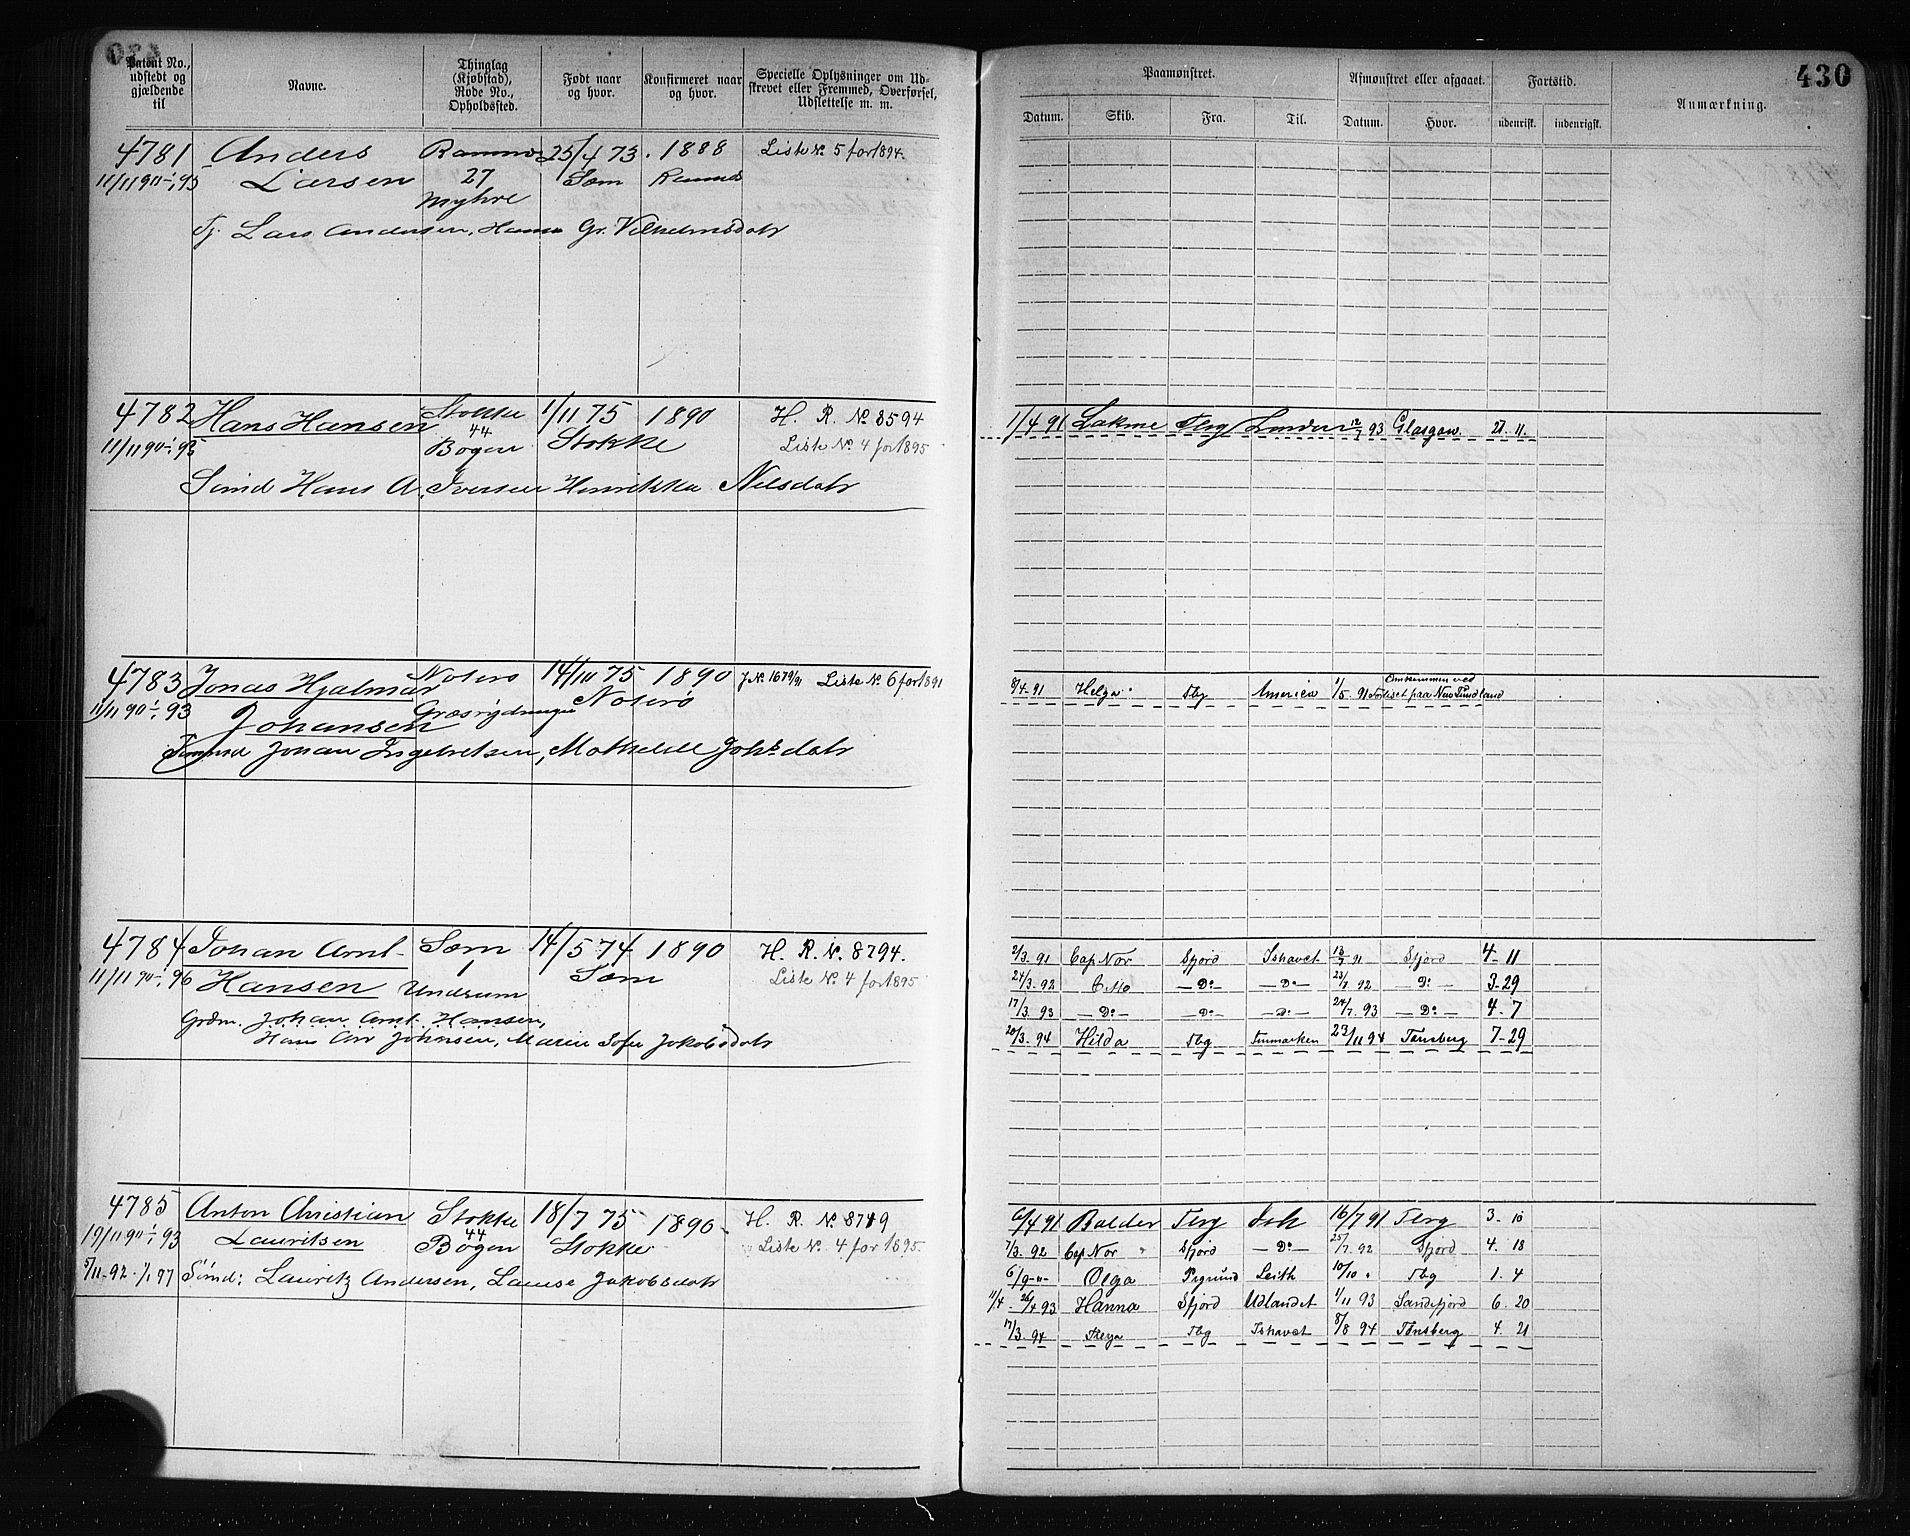 430
Patent No., udstedt og gjældende til
Navne.
Thinglag (Kjøbstad), Rode No., Opholdssted.
Født naar og hvor.
Konfirmeret naar og hvor.
Specielle Oplysninger om Udskrevet eller Fremmed, Overførsel, Udslettelse m. m.
Paamønstret.
Afmønstret eller afgaaet.
Fartstid.
Anmærkning.
Datum. Skib. Fra. Til. Datum. Hvor. udenrisk. indenrigsk.
4781 Anders Ramnæs 25/4 73. 1888 Liste No. 5 for 1894.
11/11 90 - 1/1 95 Larsen 27 Sæm Ramnæs
Myhre
Tj. Lars Andersen, Hanna Gr. Vilhelmsdatr
4782 Hans Hansen Stokke 1/11 75 1890 H. R. No. 8594
11/11 90 - 1/1 95 44 Bogen Stokke Liste No. 4 for 1895
Sømd Hans A. Iversen Henrikka Nilsdatr
1/4 91 Lakme Tbrg London 12/7 93 Glasgow. 27. 11.
4783 Jonas Hjalmar Noterø 14/10 75 1890 J No. 1679/91 Liste No. 6 for 1891
11/11 90 - 1/1 93 Johansen Græsrydningen Noterø
Tømmd Johan Ingebretsen, Mathilde Johsdatr
8/4. 91 Helga Tbg America 1/5. 91 Omkommen ved Forliset paa New Fundland
4784 Johan Aml. Sæm 14/5 74 1890 H. R. No. 8794.
11/11 90 - 1/1 96 Hansen 1 Undrum Sæm Liste No. 4 for 1895
Grdm. Johan Aml. Hansen,
Hans Arv Johnsen, Maren Sofie Jakobsdatr
2/3. 91 Cap Nor Sfjord Ishavet 13/7 91 Sfjord 4-11
24/3. 92 — Do — — Do — 23/7. 92 — Do — 3-29
17/3. 93 — Do — — Do — — Do — 24/7. 93 — Do — 4-7
20/3. 94 Hilda Tbg Finmarken 23/11 94 Tønsberg 7-29
4785 Anton Christian Stokke 18/7 75 1890 H. R. No. 8719
19/11 90 - 1/1 93 Lauritsen 44 Bogen Stokke Liste No. 4 for 1895.
5/11-92 - 1/1 97 Sømd: Lauritz Andersen, Lauise Jakobsdatr
6/4 91 Balder Tbrg Ish 16/7 91 Tbrg 3. 10
7/3. 92 Cap Nor Sfjord — Do — 25/7. 92 Sfjord 4. 18
6/9 -"- Olga Prgrund Leith 10/10 " Tbg 1. 4
11/4 - 26/4 93 Hanna Sfjord Udlandet 1/11 93 Sandefjord 6. 20
17/3. 94 Freya Tbg Ishavet 8/8 94 Tønsberg 4. 21